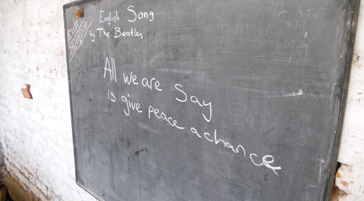 English Song
by The Beatles
All we are Say
is give peace a chance